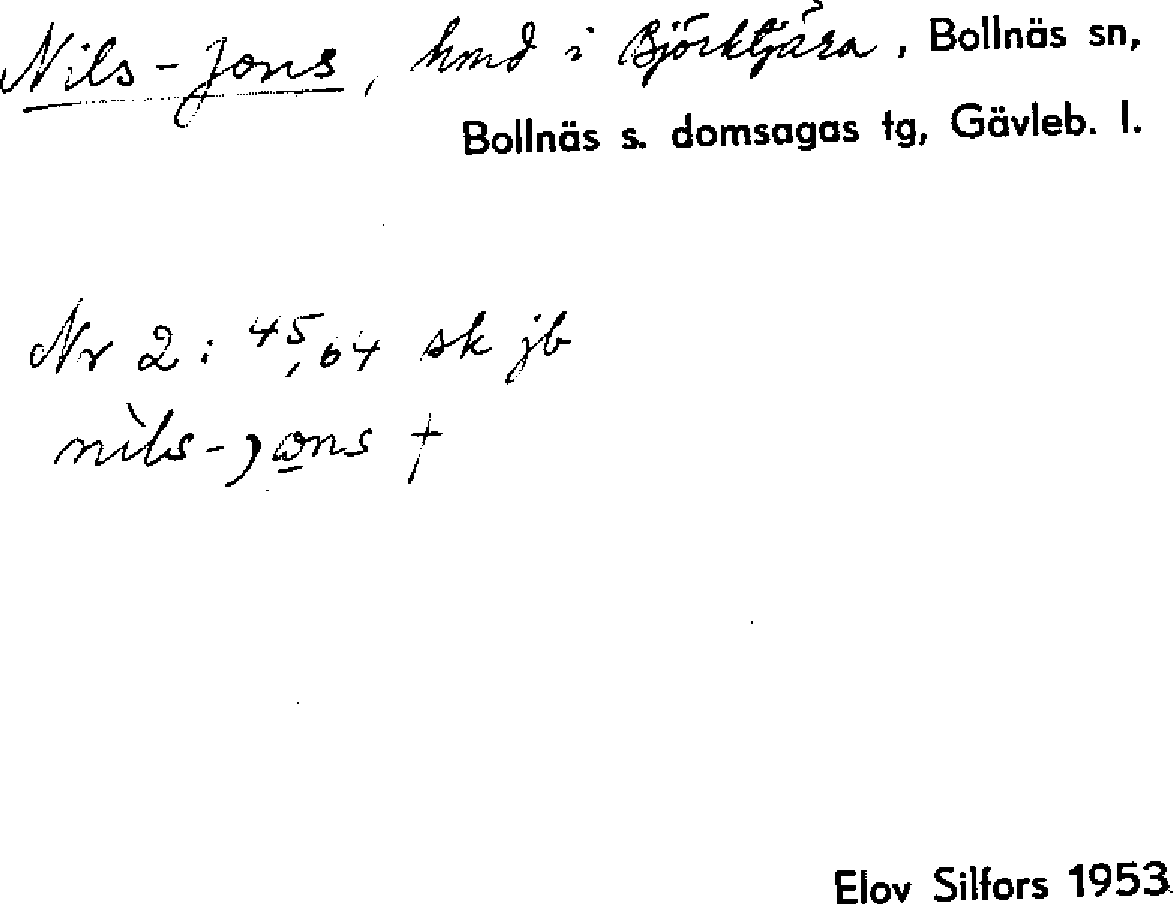 Nils-Jons, hmd i Björktjära, Bollnäs sn,
Bollnäs s. domsagas tg, Gävleb. l.
Nr 2: 45,64 sk jb
nìls-jωns †
Elov Silfors 1953